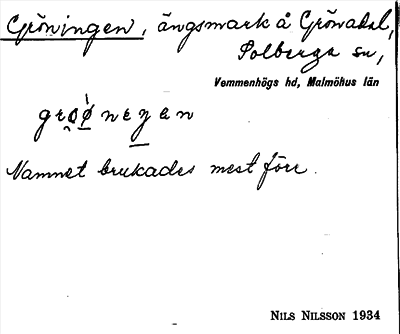 Gröningen, ängsmark å Grönadal,
Solberga sn,
Vemmenhögs hd, Malmöhus län
Namnet brukades mest förr.
NILS NILSSON 1934